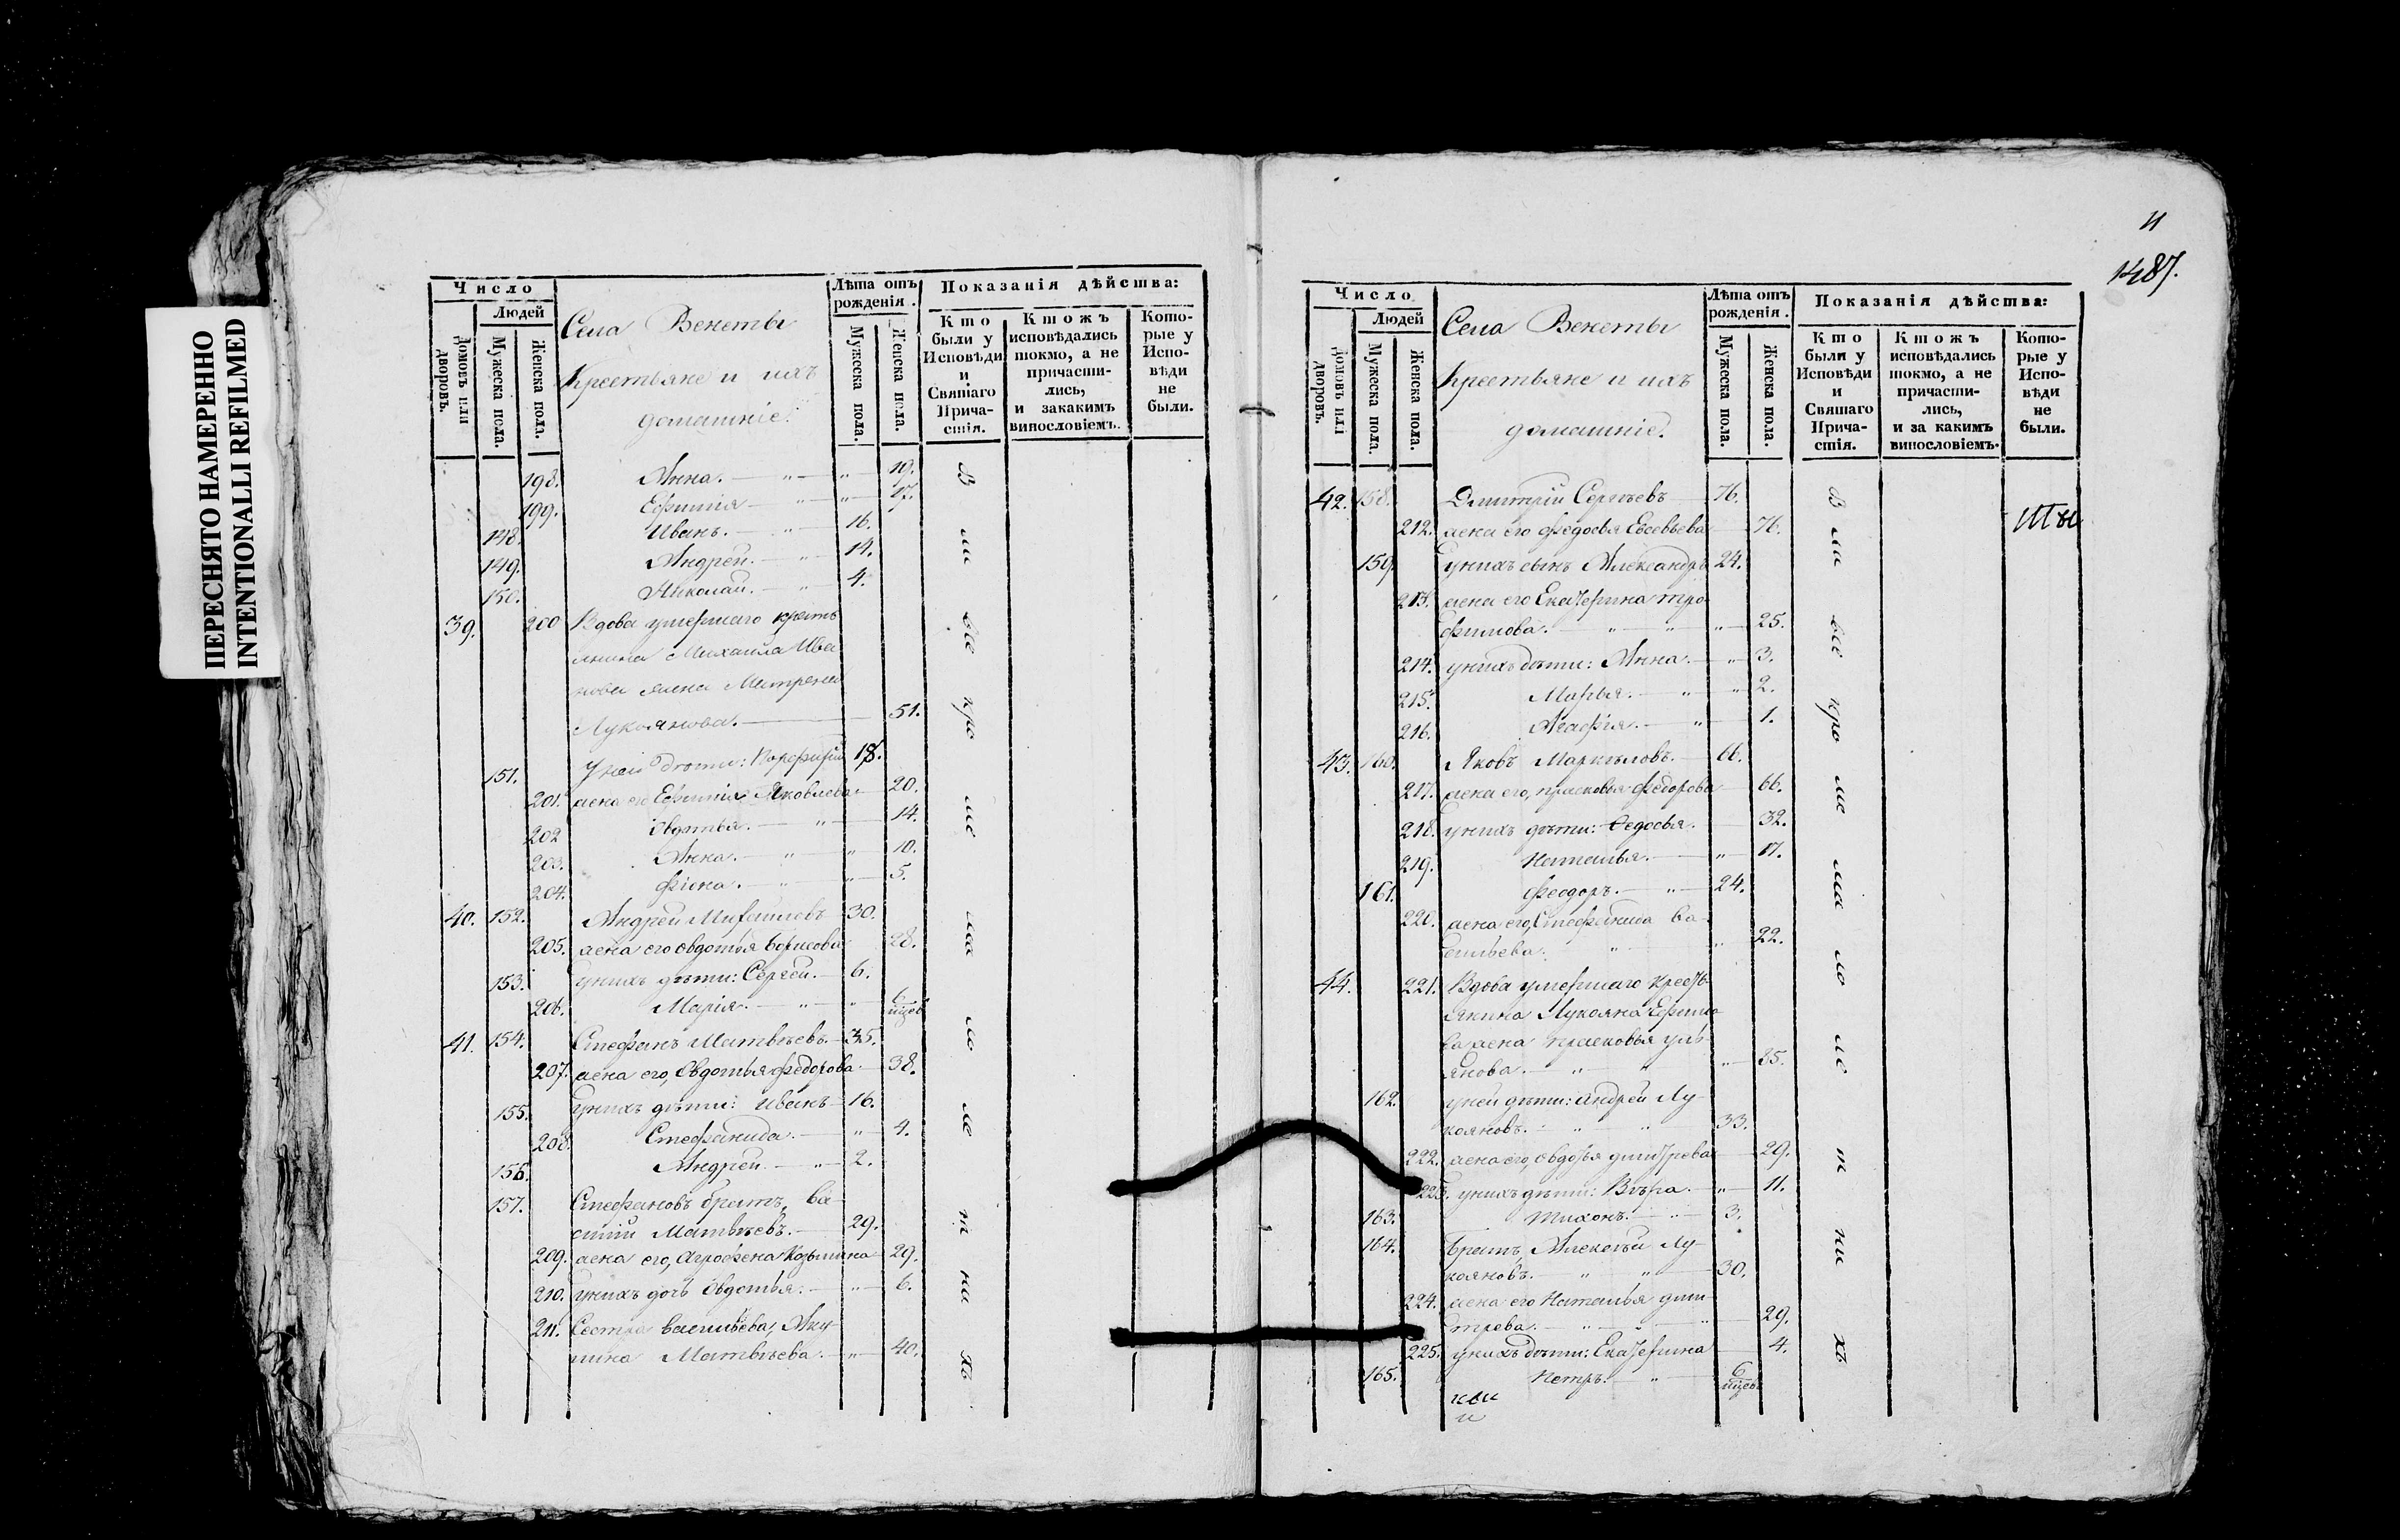 ПЕРЕСНЯТО НАМЕРЕННО
INTENTIONALLI REFILMED
Число
Людей
Домовъ или дворовъ.
Мужеска пола.
Женска пола.
Села Векеты
Крестьяне и ихъ
домашніе.
Лѣта отъ рожденія.
Мужеска пола.
Женска пола.
Показанія дѣйства:
Кто были у Исповѣди и Святаго Причастія.
Ктожъ исповѣдались токмо, а не причастились, и закакимъ винословіемъ.
Которые у Исповѣди не были.
198. Анна. 19.
199. Ефимія 17.
148. Иванъ. 16.
149. Андрей. 14.
150. Николай. 4.
39. 200 Вдова умершаго крестъ
янина Михаила Ива
нова жена Матрена
Лукоянова. 51.
151. У ней дѣти: Порфирій 18.
201. жена его Ефимія Яковлева 20.
202 Овдотья. 14.
203. Анна. 10.
204. Фіона. 5.
40. 152. Андрей Михайловъ 30.
205. жена его Овдотья Борисова 28.
153. унихъ дѣти: Сергей. 6.
206. Марія. 6 мцов
41. 154. Стефанъ Матвѣевъ. 35.
207. жена его, Овдотья Федорова 38.
155. унихъ дѣти: Иванъ 16.
208. Стефанида. 4.
156. Андрей. 2.
157. Стефановъ братъ, Ва-
силій Матвѣевъ. 29.
209. жена его, Агрофена Козьмина 29.
210. унихъ дочь Овдотья. 6.
211. Сестра васильева, Аку-
лина Матвѣева. 40.
11
1487.
Число
Людей
Домовъ или дворовъ.
Мужеска пола.
Женска пола.
Села Векеты
Крестьяне и ихъ
домашніе.
Лѣта отъ рожденія.
Мужеска пола.
Женска пола.
Показанія дѣйства:
Кто были у Исповѣди и Святаго Причастія.
Ктожъ исповѣдались токмо, а не причастились, и за какимъ винословіемъ.
Которые у Исповѣди не были.
42. 158. Дмитрій Сергѣевъ 76.
212. жена его Федосья Евсевьева 76.
159 унихъ сынъ Александръ 24.
213. жена его Екатерина Тро-
фимова. 25.
214. унихъ дѣти: Анна. 3.
215. Марья. 2.
216. Агафія. 1.
43. 160. Яковъ Маркѣловъ. 66.
217. жена его, прасковья Федорова 66.
218. унихъ дѣти: Федосья. 32.
219. Наталья. 17.
161. Феодоръ. 24.
220. жена его, Стефанида Ва-
сильева. 22.
44. 221. Вдова умершаго кресть-
янина Лукояна Ефимо
ва жена прасковья уль-
янова. 85.
162. уней дѣти: Андрей Лу-
кояновъ. 33.
222. жена его, Овдотья дмитрева 29.
223. унихъ дѣти: Вѣра. 11.
163. Тихонъ. 3.
164. братъ, Алексѣй Лу-
кояновъ. 30.
224. жена его Наталья дми-
трева. 29.
225. унихъ дѣти: Екатерина 4.
165. Петръ. 6 мцов